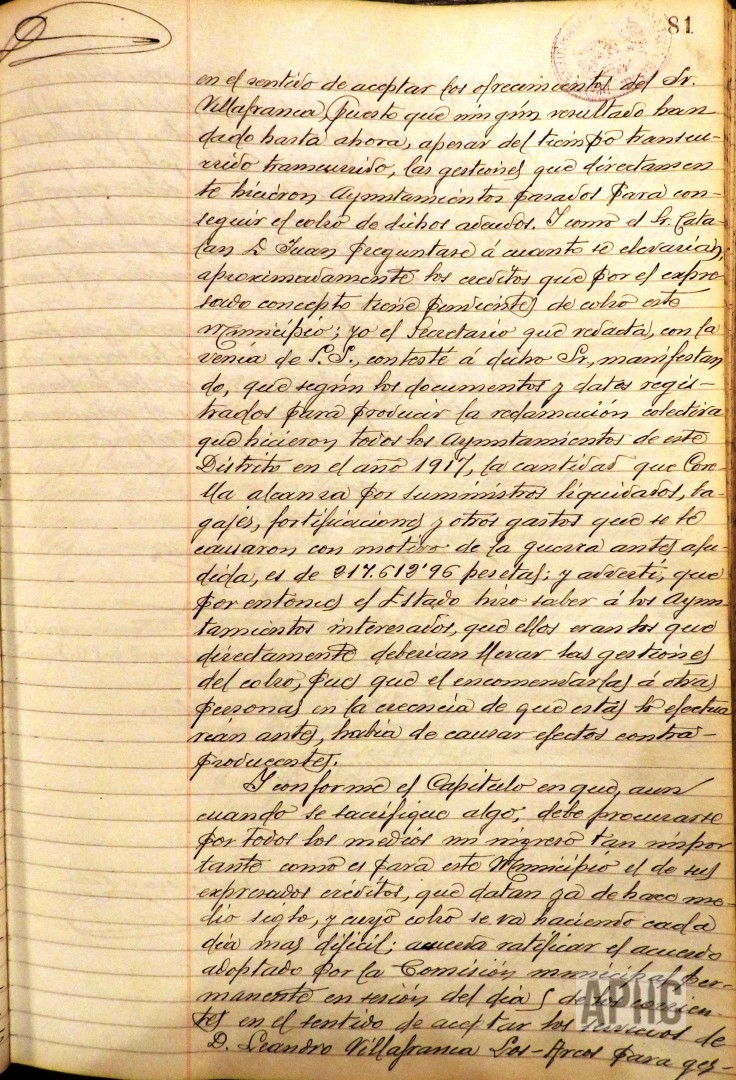 81
en el sentido de aceptar los ofrecimientos del Sr.
Villafranca, puesto que ningún resultado han
dado hasta ahora, apesar del tiempo transcu-
rrido transcurrido, las gestiones que directamen
te hicieron Ayuntamientos pasados para con-
seguir el cobro de dichos adeudos. Y como el Sr. Cata-
lan D. Juan preguntase á cuanto se elevarian,
aproximadamente los creditos que por el expre-
sado concepto tiene pendientes de cobro este
Municipio; yo el Secretario que redacta, con la
venia de S.S., contesté á dicho Sr., manifestan
do, que según los documentos y datos regis-
trados para producir la reclamación colectiva
que hicieron todos los Ayuntamientos de este
Distrito en el año 1917, la cantidad que Core-
lla alcanza por suministros liquidados, ba-
gajes, fortificaciones y otros gastos que se le
causaron con motivo de la guerra antes alu-
dida, es de 217.612'96 pesetas; y advertí, que
por entonces el Estado hizo saber á los Ayun-
tamientos interesados, que ellos eran los que
directamente deberian llevar las gestiones
del cobro, pues que el encomendarlas á otras
personas en la creencia de que estas lo efectua
rián antes, habia de causar efectos contra-
producentes.
Y conforme el Capitulo en que, aun
cuando se sacrifique algo, debe procurarse
por todos los medios un ingreso tan impor
tante como es para este Municipio el de sus
expresados creditos, que datan ya de hace me-
dio siglo, y cuyo cobro se va haciendo cada
dia mas dificil; acuerda ratificar el acuerdo
adoptado por la Comisión municipal Per-
manente en sesión del dia 5 de los corrien-
tes en el sentido de aceptar los servicios de
D. Leandro Villafranca Los-Arcos para ges-
APHC